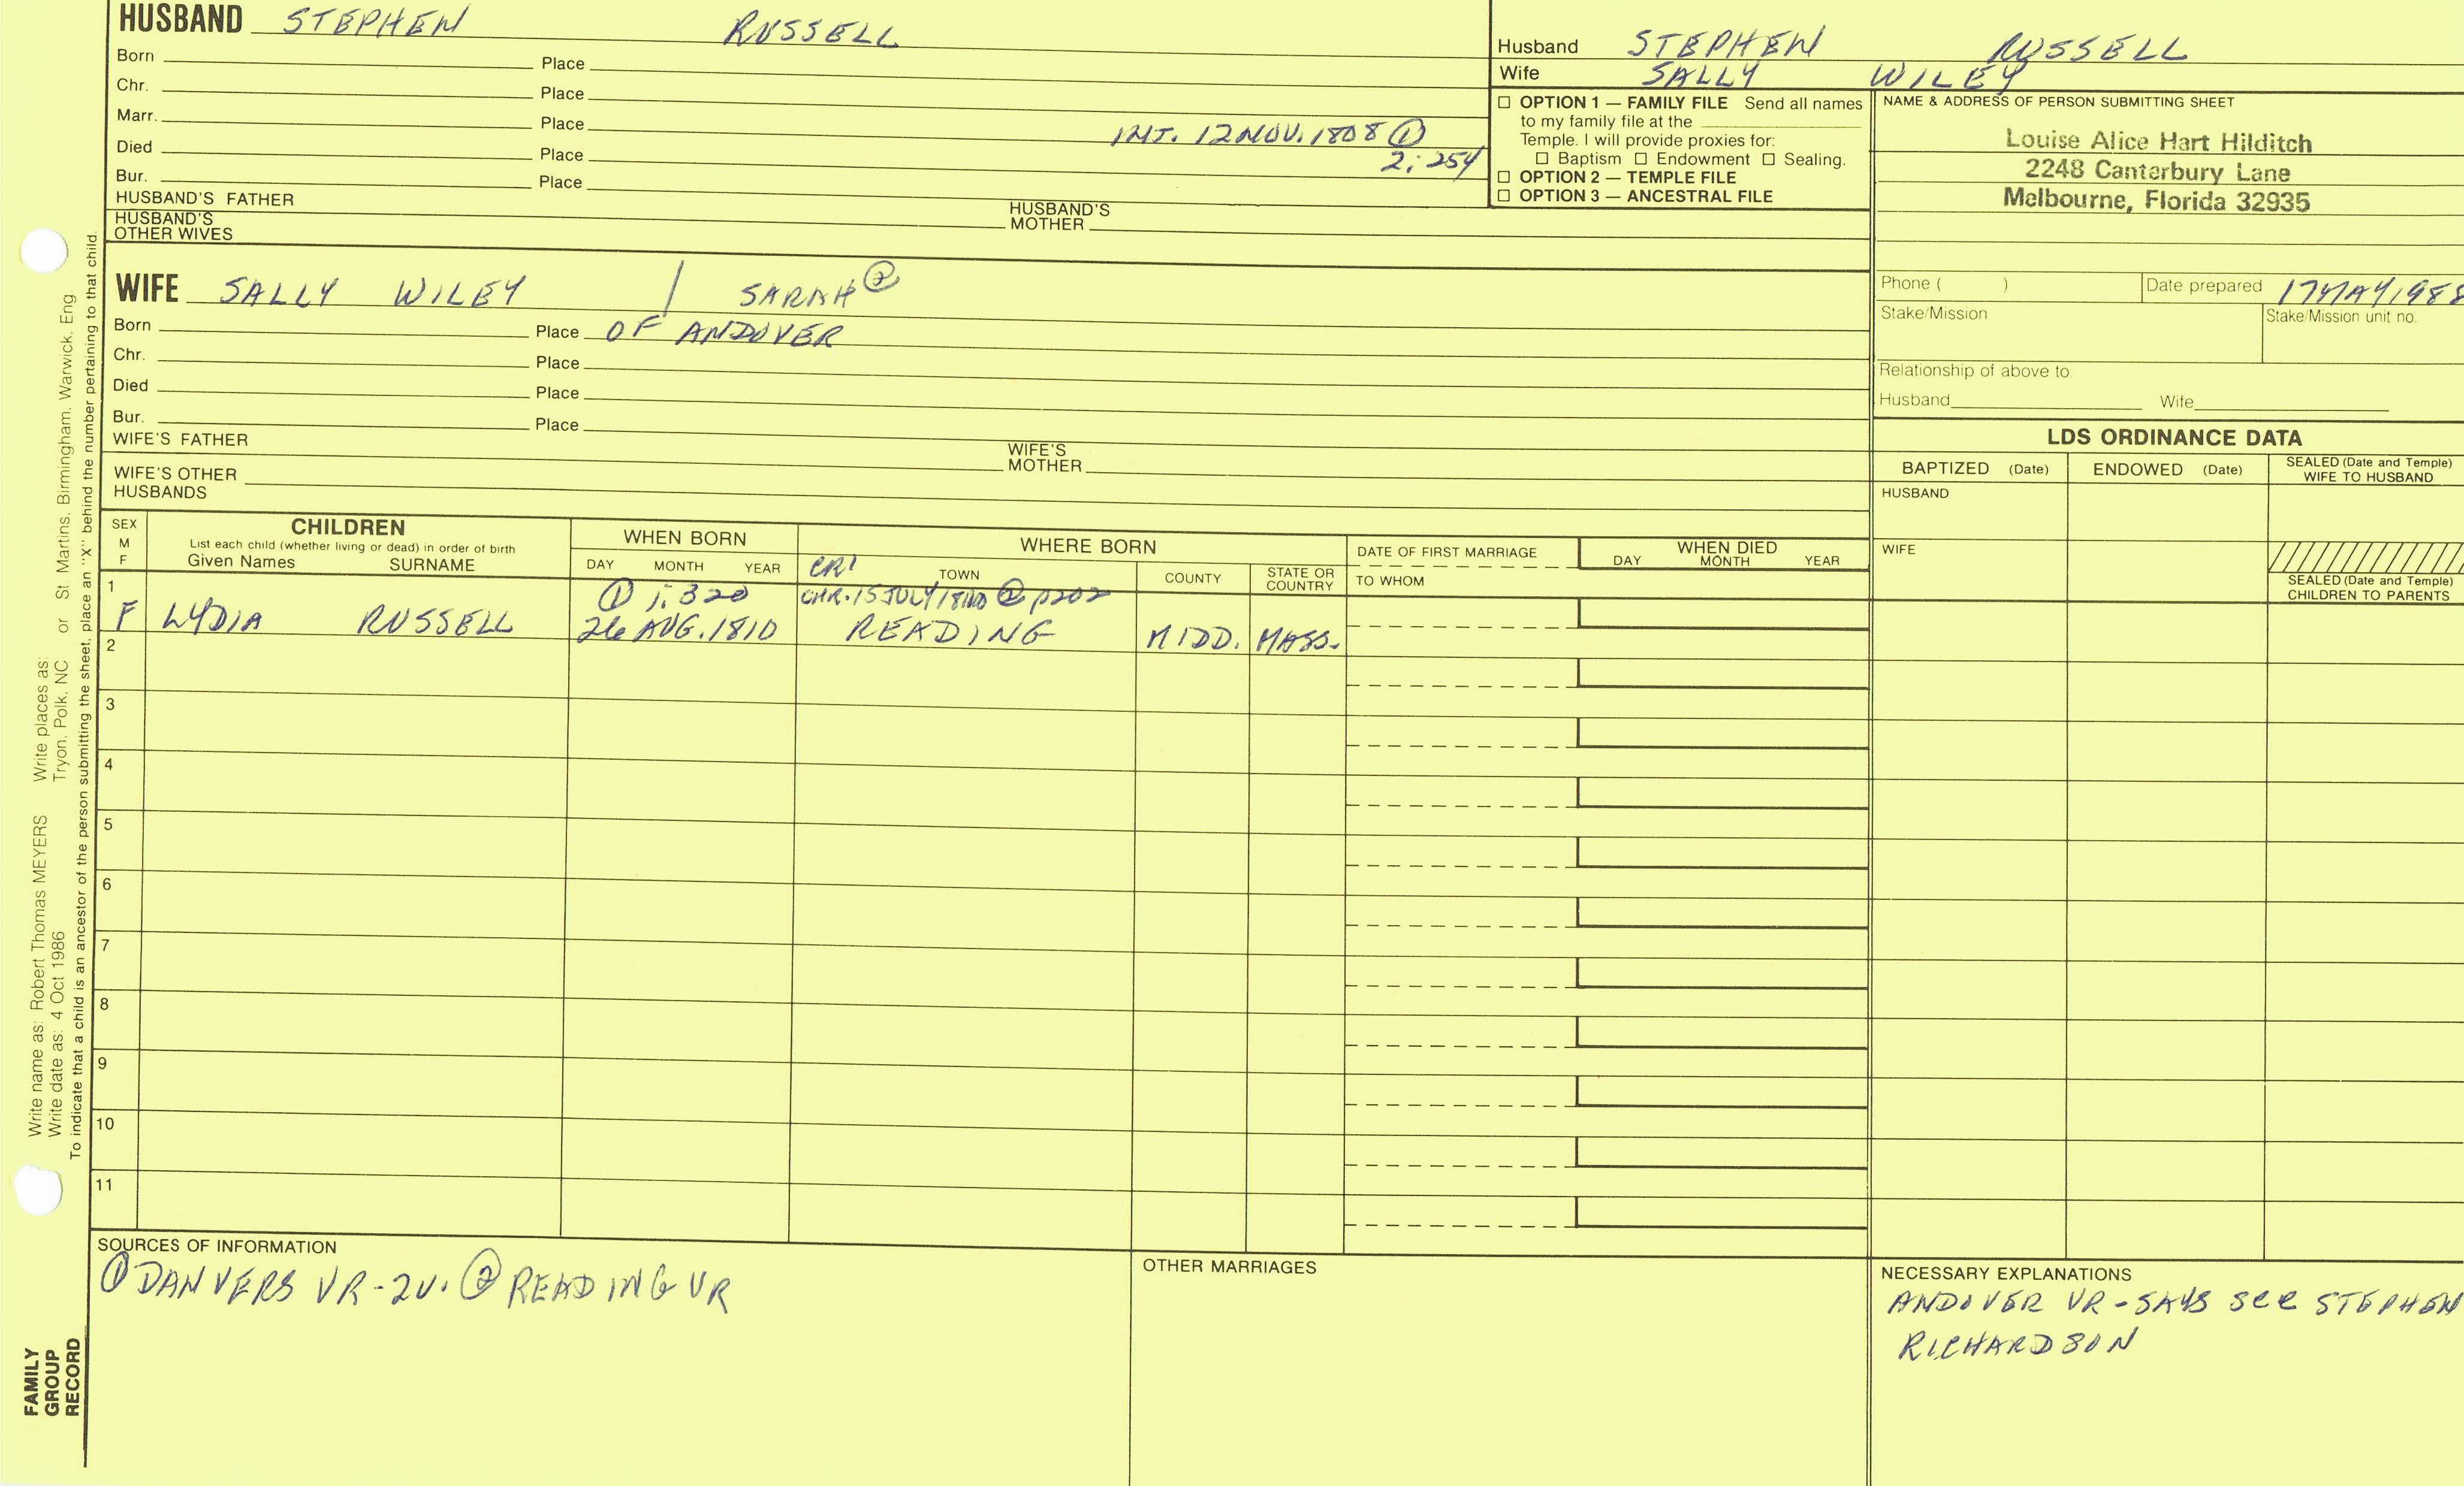 HUSBAND STEPHEN RUSSELL
Born Place
Chr. Place
Marr. Place INT. 12 NOV. 1808 ①
Died Place 2:254
Bur. Place
HUSBAND'S FATHER HUSBAND'S MOTHER
HUSBAND'S OTHER WIVES
Husband STEPHEN RUSSELL
Wife SALLY WILEY
☐ OPTION 1 — FAMILY FILE Send all names
to my family file at the
Temple. I will provide proxies for:
☐ Baptism ☐ Endowment ☐ Sealing.
☐ OPTION 2 — TEMPLE FILE
☐ OPTION 3 — ANCESTRAL FILE
NAME & ADDRESS OF PERSON SUBMITTING SHEET
Louise Alice Hart Hilditch
2248 Canterbury Lane
Melbourne, Florida 32935
WIFE SALLY WILEY / SARAH ②
Born Place OF ANDOVER
Chr. Place
Died Place
Bur. Place
WIFE'S FATHER WIFE'S MOTHER
WIFE'S OTHER HUSBANDS
Phone ( ) Date prepared 17 MAY 1988
Stake/Mission Stake/Mission unit no.
Relationship of above to
Husband Wife
LDS ORDINANCE DATA
BAPTIZED (Date) ENDOWED (Date) SEALED (Date and Temple) WIFE TO HUSBAND
HUSBAND
WIFE
SEALED (Date and Temple) CHILDREN TO PARENTS
SEX M F
CHILDREN
List each child (whether living or dead) in order of birth
Given Names SURNAME
WHEN BORN
DAY MONTH YEAR
WHERE BORN
CR1 TOWN COUNTY STATE OR COUNTRY
DATE OF FIRST MARRIAGE
TO WHOM
WHEN DIED
DAY MONTH YEAR
1 ① 1:320 CHR. 15 JULY ② p202
F LYDIA RUSSELL 26 AUG. 1810 READING MIDD. MASS.
2
3
4
5
6
7
8
9
10
11
SOURCES OF INFORMATION
① DANVERS VR-2V. ② READING VR
OTHER MARRIAGES
NECESSARY EXPLANATIONS
ANDOVER VR - SAYS see STEPHEN
RICHARDSON
Write name as: Robert Thomas MEYERS Write places as: St Martins, Birmingham, Warwick, Eng.
Write date as: 4 Oct 1986 Tryon, Polk, NC or
To indicate that a child is an ancestor of the person submitting the sheet, place an "X" behind the number pertaining to that child.
FAMILY
GROUP
RECORD